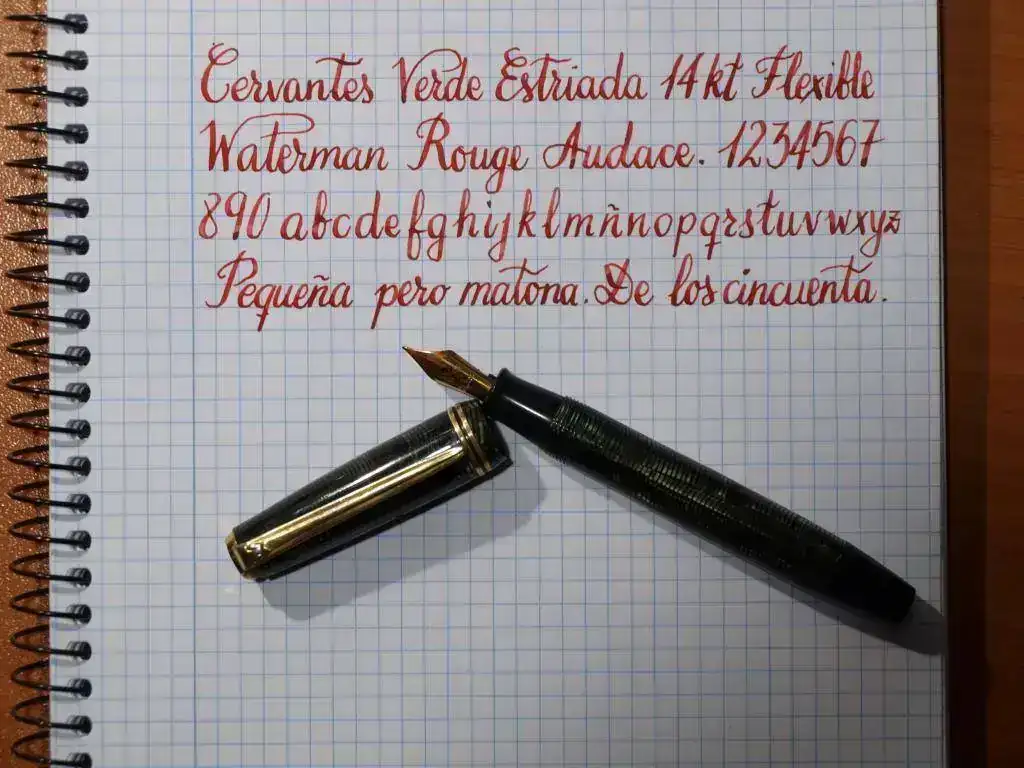 Cervantes Verde Estriada 14kt Flexible
Waterman Rouge Audace. 1234567
890 abcdefghijklmñnopqrstuvwxyz
Pequeña pero matona. De los cincuenta.